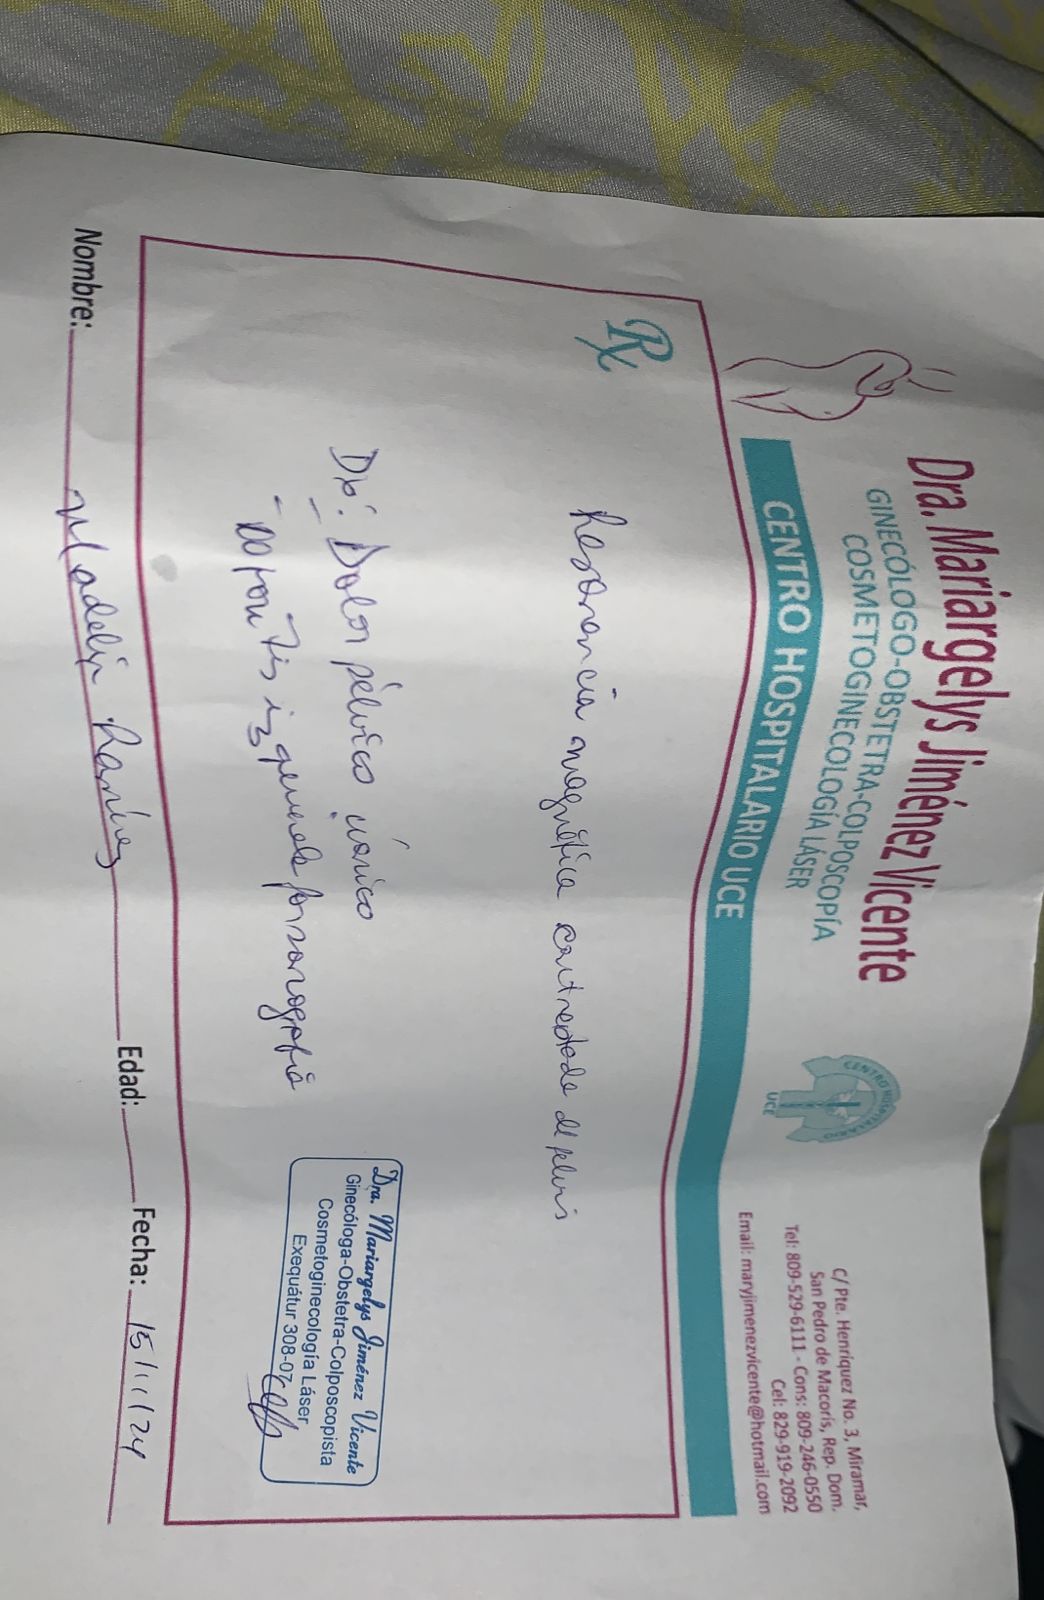 Dra. Mariargelys Jiménez Vicente
GINECÓLOGO-OBSTETRA-COLPOSCOPÍA
COSMETOGINECOLOGÍA LÁSER
CENTRO HOSPITALARIO UCE
CENTRO HOSPITALARIO
UCE
C/ Pte. Henríquez No. 3, Miramar,
San Pedro de Macorís, Rep. Dom.
Tel: 809-529-6111 - Cons: 809-246-0550
Cel: 829-919-2092
Email: maryjimenezvicente@hotmail.com
Rx
Resonancia magnética contrastada de pelvis
Dx: Dolor pélvico
- izquierda por sonografía
Dra. Mariargelys Jiménez Vicente
Ginecóloga-Obstetra-Colposcopista
Cosmetoginecología Láser
Exequátur 308-07
Nombre: Madelin Ramírez Edad: Fecha: 15/11/24